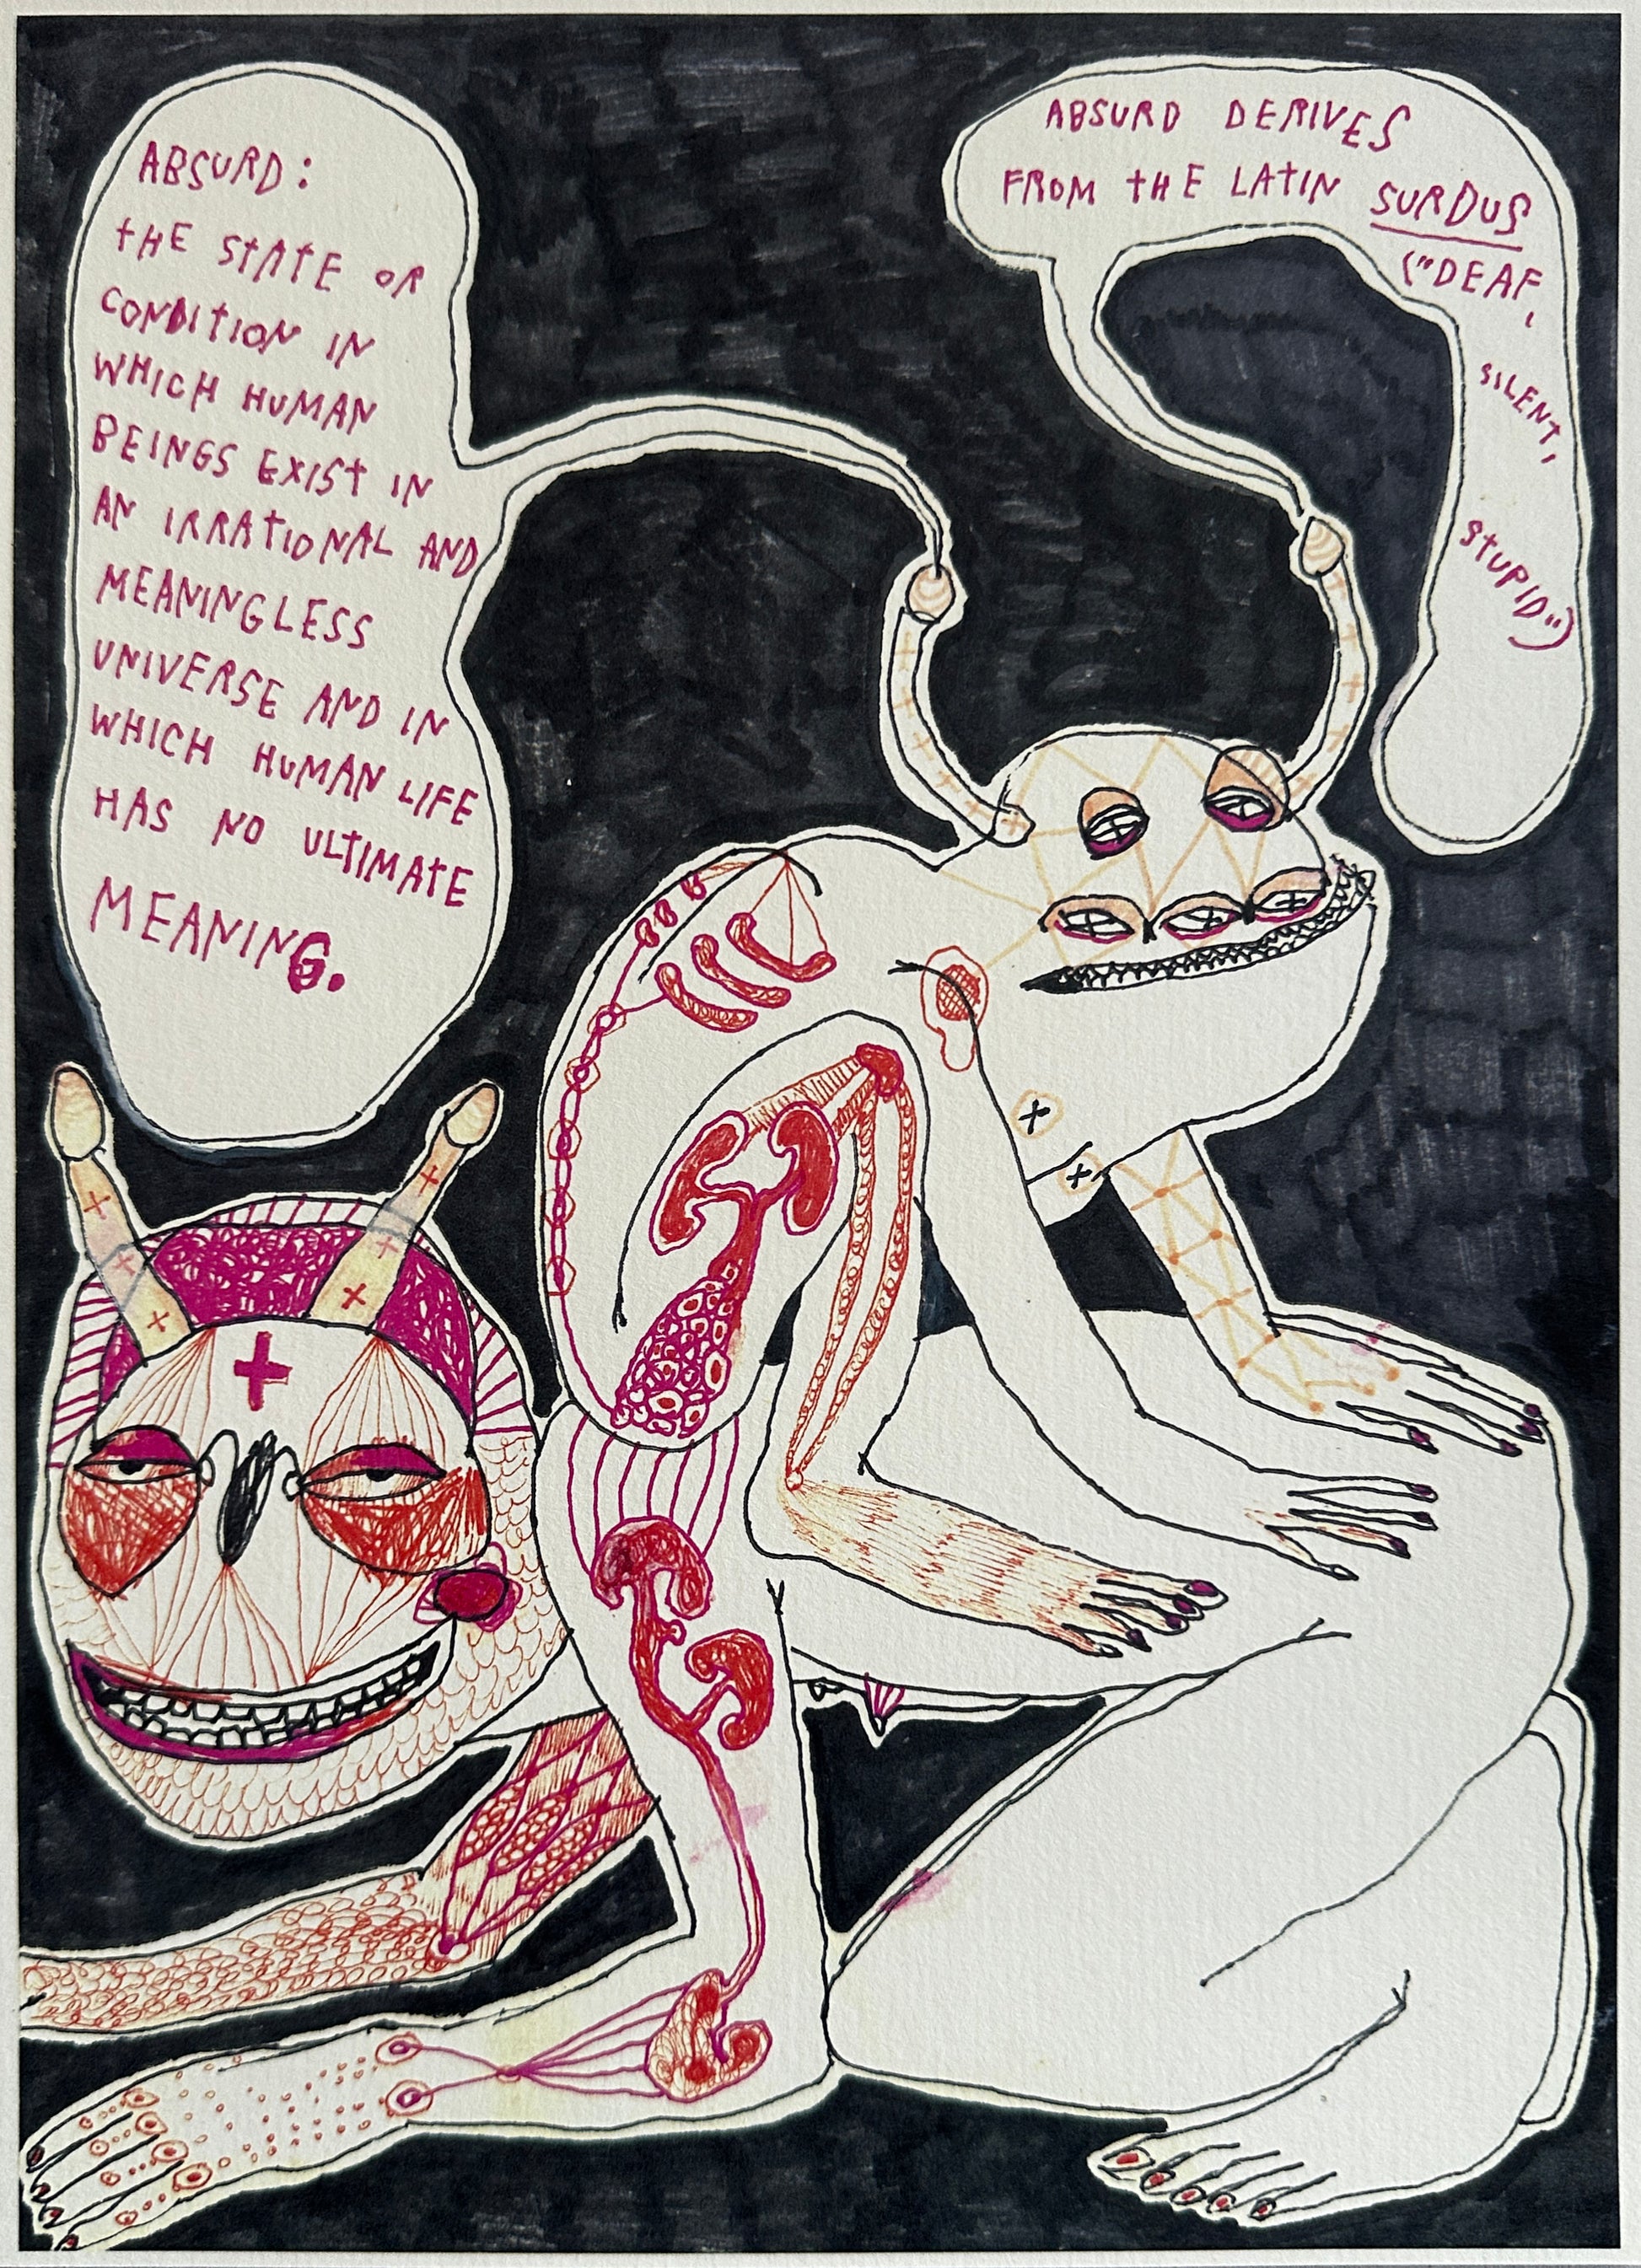 ABSURD:
THE STATE OR
CONDITION IN
WHICH HUMAN
BEINGS EXIST IN
AN IRRATIONAL AND
MEANINGLESS
UNIVERSE AND IN
WHICH HUMAN LIFE
HAS NO ULTIMATE
MEANING.
ABSURD DERIVES
FROM THE LATIN SURDUS
("DEAF,
SILENT,
STUPID")